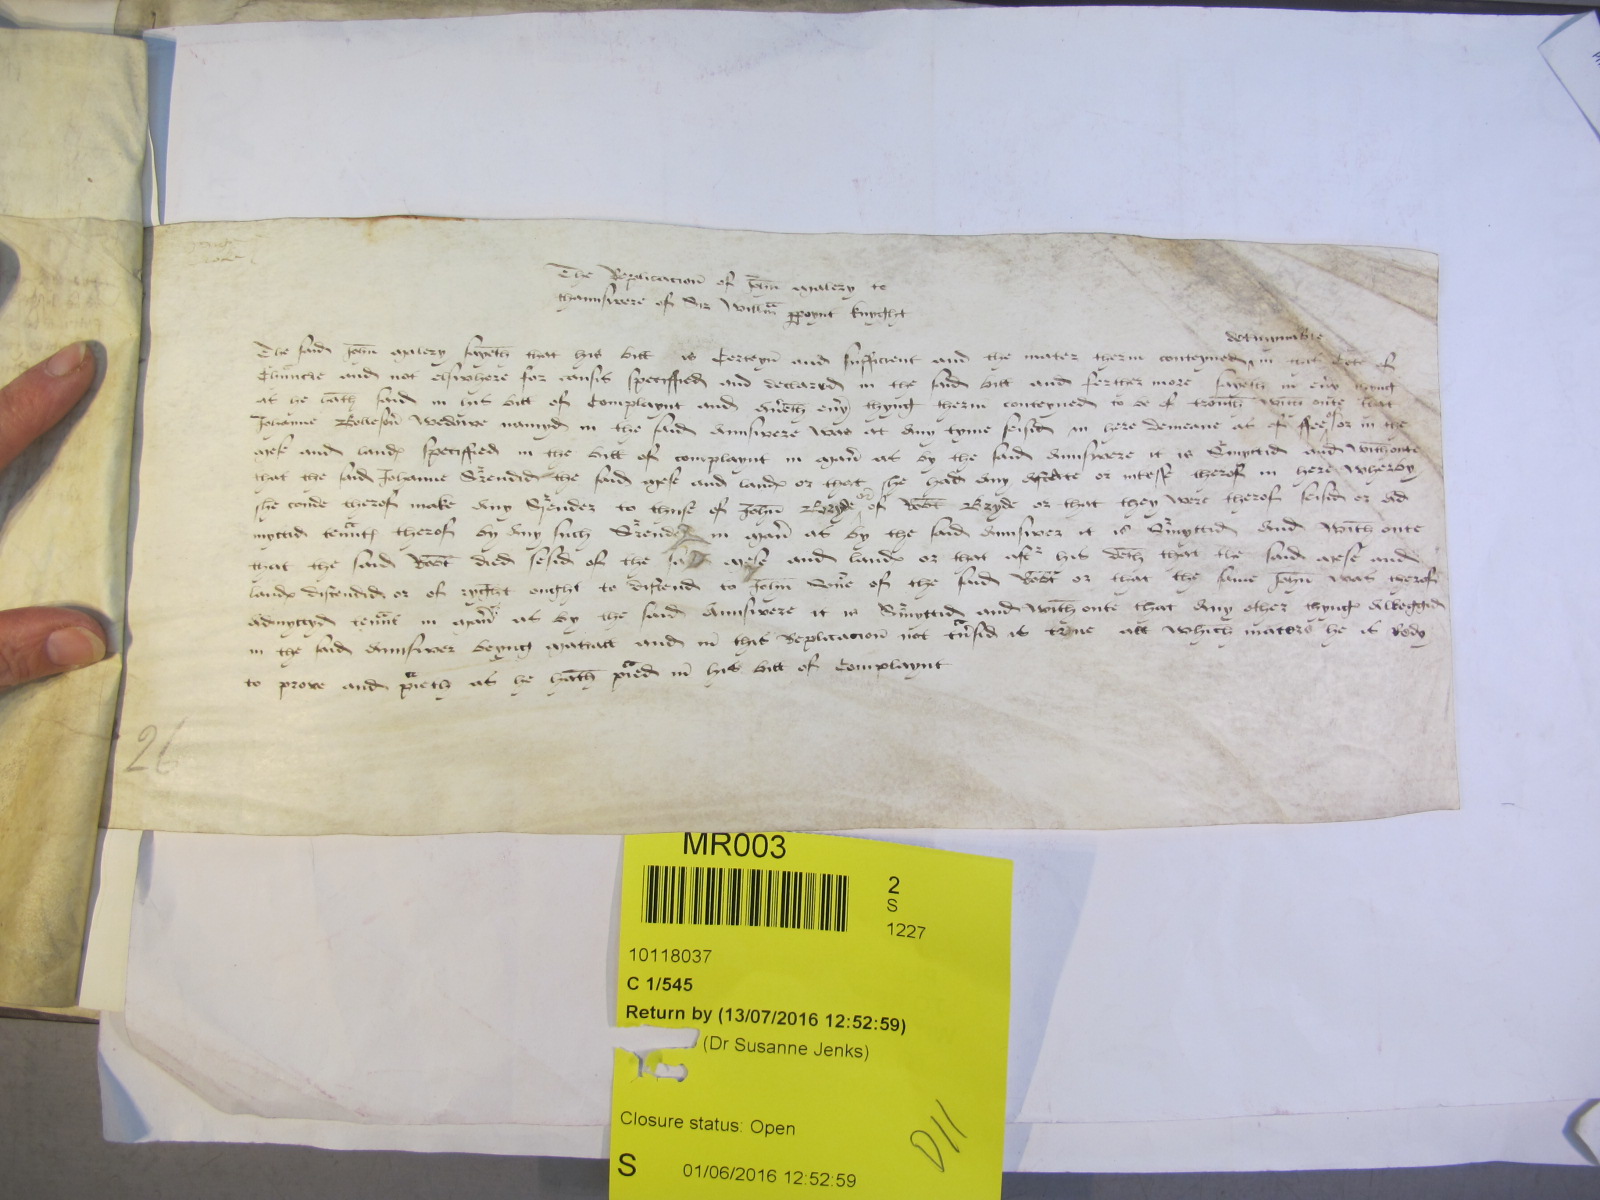 The Replicacion of John Malery to
thannswere of Sir Willm Ppoynt knyght
determinable
The said John Malery sayeth that his bill is certeyn and sufficient and the mater therin conteyned in this Cort of
Chauncie and not elswhere for causis speciffied and declaryd in the said bill and ferther more sayeth in eny thyng
as he hath said in his bill of Complaynt and averreth eny thyng therin conteyned to be of trouth with oute that
Johanne Rolleson Wedowe namyd in the said Annswere was at Any tyme seised in here demeane as of ffee or in the
mese and land speciffied in the bill of complaynt in maner as by the said Annswere it is Surmyttid and withoute
that the said Johanne Surrendid the said mese and land or that she had Any astate or intresse therof in here wherby
she coude therof make Any Surrender to thuse of John Bryde or of Robt Bryde or that they were therof seised or ad
myttid tennt therof by Any such Surrender in maner as by the said Annswer it is Surmyttid And with oute
that the said Robt died sesid of the said mese and land or that aft his deth that the said mese and
land discendid or of ryght ought to discend to John Sone of the said Robt or that the same John was therof
admyttyd tennt in maner as by the said Annswere it is Surmyttid and with oute that Any other thyng Alleggid
in the said Annswer beyng matiall and in this Replicacion not trausid is true all which maters he is Redy
to prove and praieth as he hath praied in his bill of Complaynt
26
MR003
2
S
1227
10118037
C 1/545
Return by (13/07/2016 12:52:59)
(Dr Susanne Jenks)
Closure status: Open
D11
S 01/06/2016 12:52:59